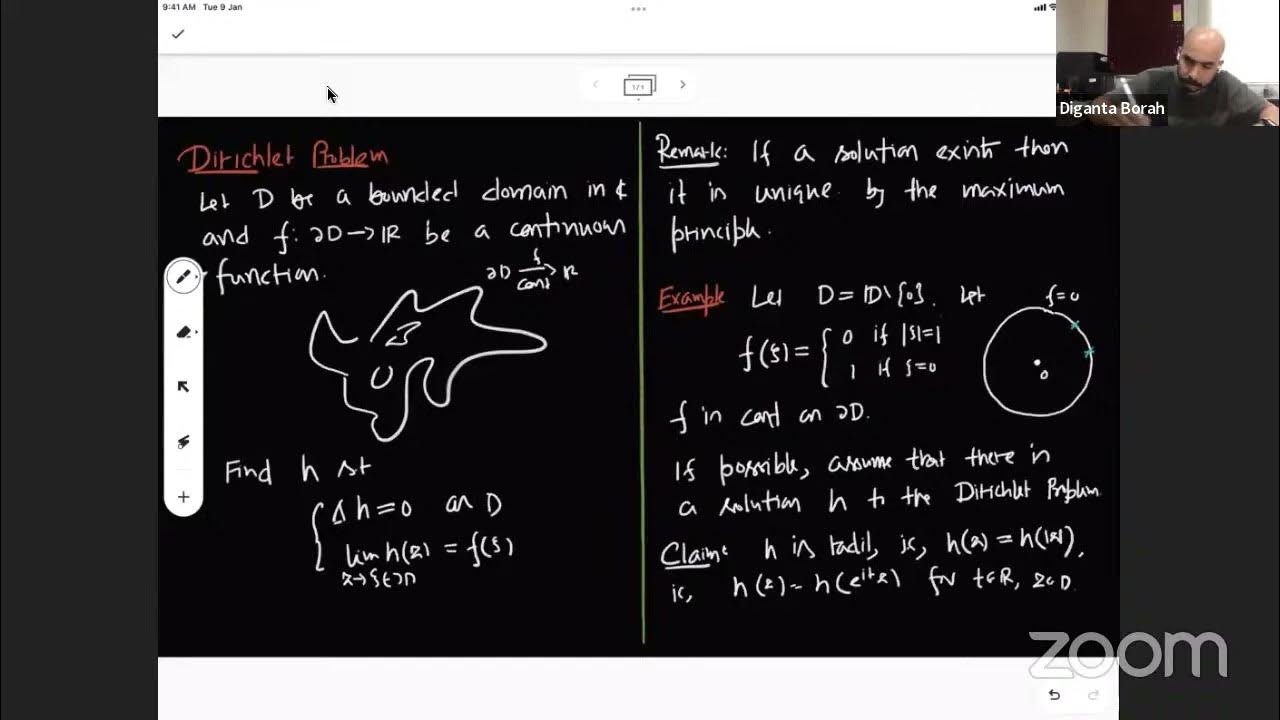 9:41 AM Tue 9 Jan
1/1
Diganta Borah
Dirichlet Problem
Let D be a bounded domain in ℂ
and f: ∂D → ℝ be a continuous
function.
∂D f→ ℝ
cont
Find h st
{ Δh = 0 on D
lim h(z) = f(ξ)
z→ξ∈∂D
Remark: If a solution exists then
it is unique by the maximum
principle.
Example Let D = 𝔻\{0}. Let
f(ξ) = { 0 if |ξ|=1
1 if ξ=0
f=0
0
f is cont on ∂D.
If possible, assume that there is
a solution h to the Dirichlet Problem.
Claim: h is radial, ie, h(z) = h(|z|),
ie, h(z) = h(e^{it}z) for t∈ℝ, z∈D.
zoom